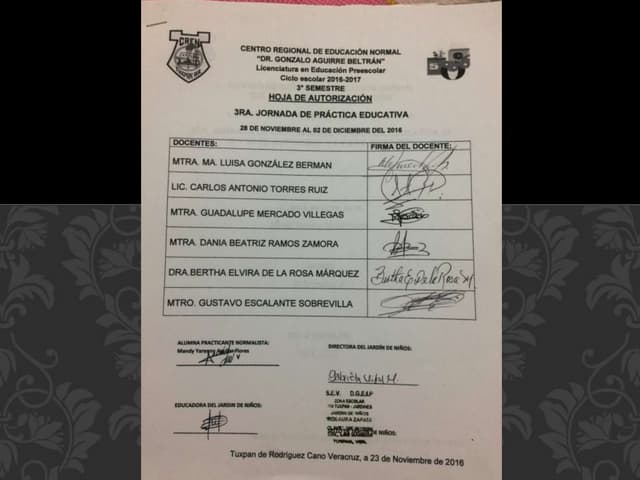 CREN
TUXPAN, VER.
CENTRO REGIONAL DE EDUCACIÓN NORMAL
"DR. GONZALO AGUIRRE BELTRÁN"
Licenciatura en Educación Preescolar
Ciclo escolar 2016-2017
3° SEMESTRE
HOJA DE AUTORIZACIÓN
3RA. JORNADA DE PRÁCTICA EDUCATIVA
28 DE NOVIEMBRE AL 02 DE DICIEMBRE DEL 2016
DOCENTES: FIRMA DEL DOCENTE:
MTRA. MA. LUISA GONZÁLEZ BERMAN
LIC. CARLOS ANTONIO TORRES RUIZ
MTRA. GUADALUPE MERCADO VILLEGAS
MTRA. DANIA BEATRIZ RAMOS ZAMORA
DRA.BERTHA ELVIRA DE LA ROSA MÁRQUEZ Bertha E. De la Rosa M
MTRO. GUSTAVO ESCALANTE SOBREVILLA
ALUMNA PRACTICANTE NORMALISTA: DIRECTORA DEL JARDÍN DE NIÑOS:
Mandy
Gabriela Vidal M.
S.E.V. D.G.E.I.P
ZONA ESCOLAR
TUXPAN - JARDINES
JARDIN DE NIÑOS
EDUCADORA DEL JARDIN DE NIÑOS:
DE NIÑOS:
TUXPAN, VER.
Tuxpan de Rodríguez Cano Veracruz, a 23 de Noviembre de 2016